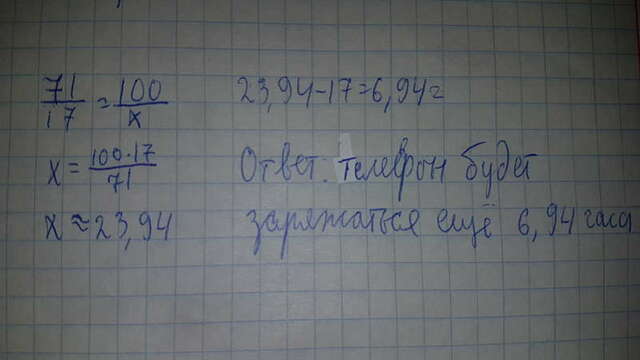 71/17 = 100/x
x = 100·17/71
x ≈ 23,94
23,94-17=6,94=
Ответ: телефон будет
заряжаться ещё 6,94 часа